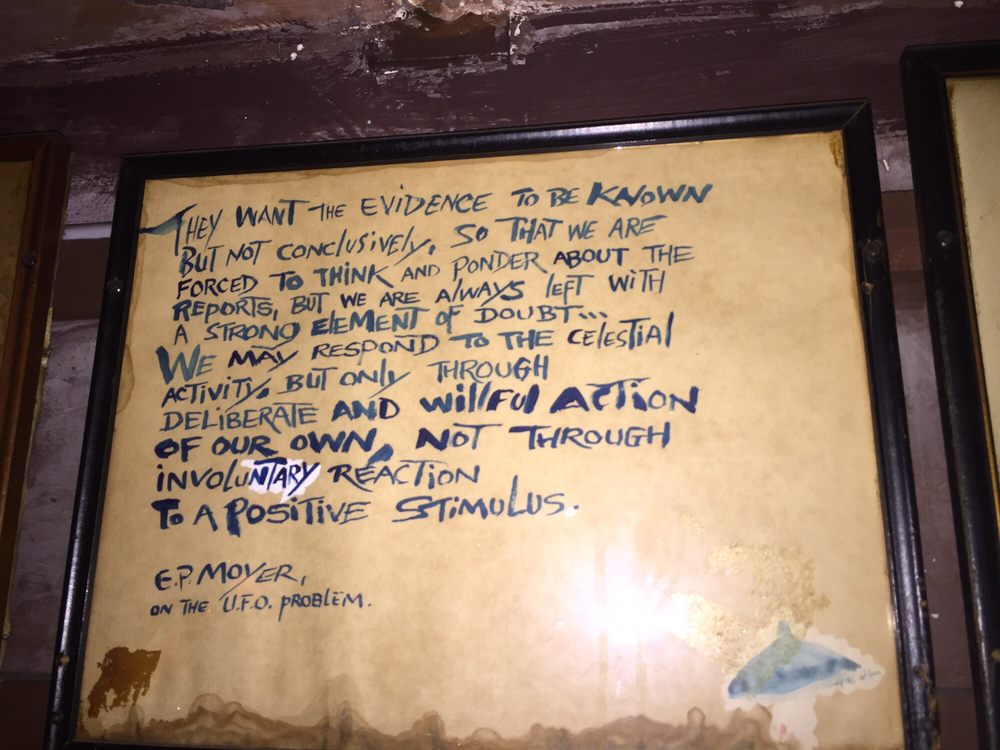 THEY WANT THE EVIDENCE TO BE KNOWN
BUT NOT CONCLUSIVELY, SO THAT WE ARE
FORCED TO THINK AND PONDER ABOUT THE
REPORTS, BUT WE ARE ALWAYS LEFT WITH
A STRONG ELEMENT OF DOUBT...
WE MAY RESPOND TO THE CELESTIAL
ACTIVITY, BUT ONLY THROUGH
DELIBERATE AND WILLFUL ACTION
OF OUR OWN, NOT THROUGH
INVOLUNTARY REACTION
TO A POSITIVE STIMULUS.
E.P. MOYER,
ON THE U.F.O. PROBLEM.